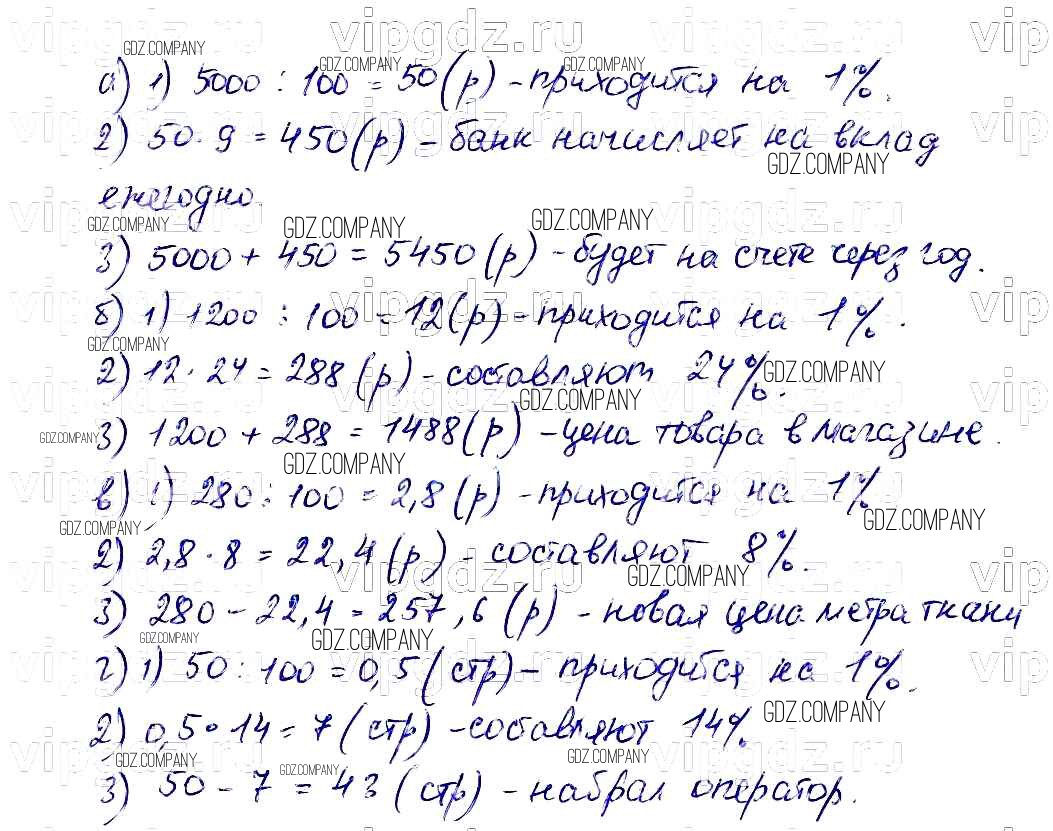 а) 1) 5000 : 100 = 50 (р) – приходится на 1%.
2) 50 · 9 = 450 (р) – банк начисляет на вклад
ежегодно.
3) 5000 + 450 = 5450 (р) – будет на счете через год.
б) 1) 1200 : 100 = 12 (р) – приходится на 1%.
2) 12 · 24 = 288 (р) – составляют 24%.
3) 1200 + 288 = 1488 (р) – цена товара в магазине.
в) 1) 280 : 100 = 2,8 (р) – приходится на 1%
2) 2,8 · 8 = 22,4 (р) – составляют 8%.
3) 280 – 22,4 = 257,6 (р) – новая цена метра ткани
г) 1) 50 : 100 = 0,5 (стр) – приходится на 1%.
2) 0,5 · 14 = 7 (стр) – составляют 14%.
3) 50 – 7 = 43 (стр) – набрал оператор.
vipgdz.ru
GDZ.COMPANY